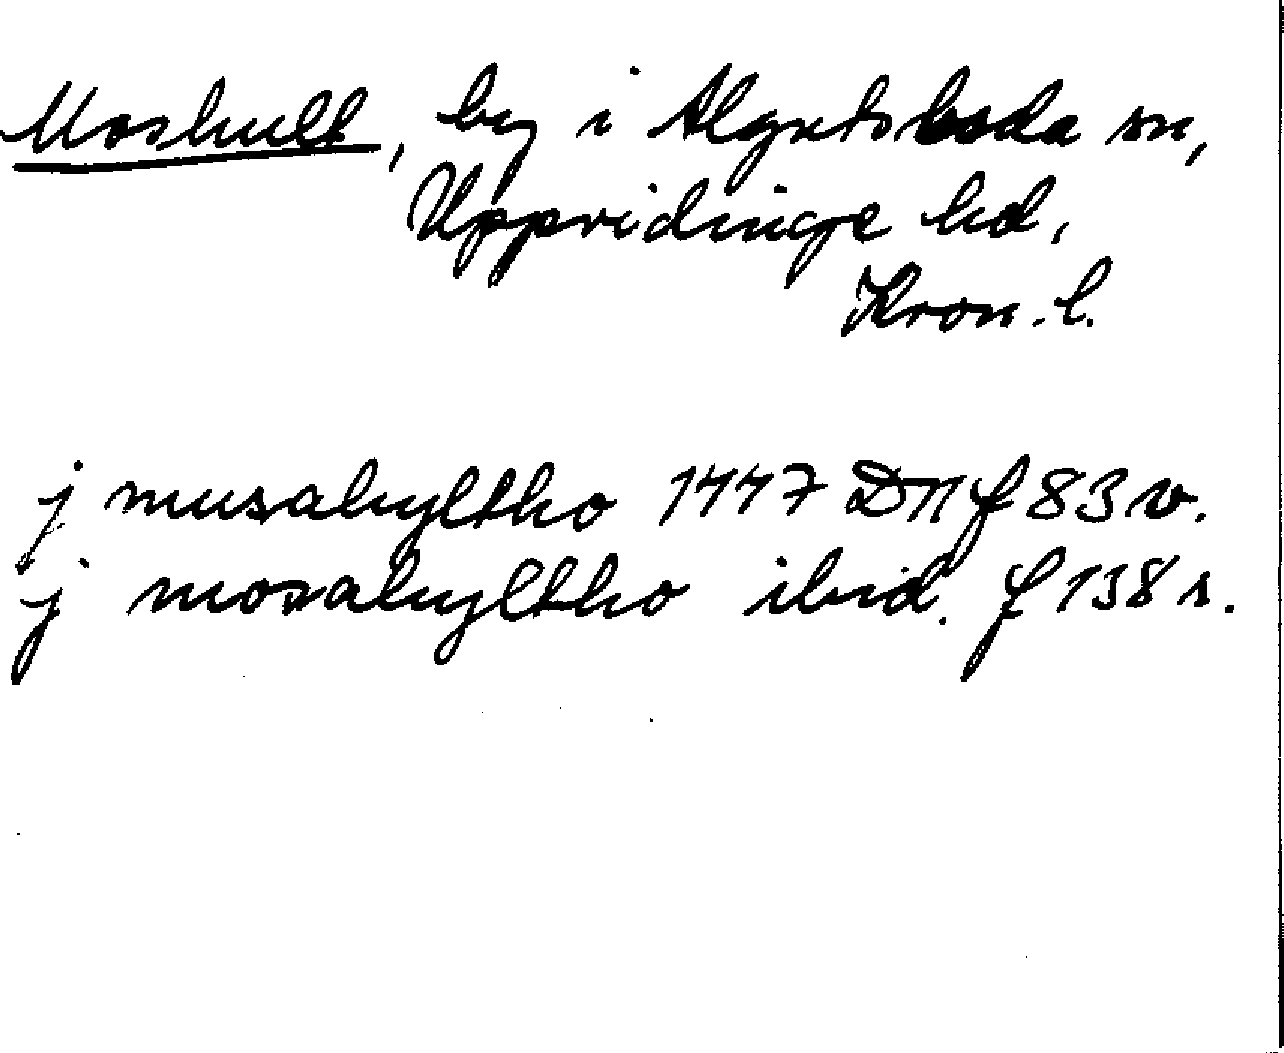 Moshult, by i Algutsboda sn,
Uppvidinge hd,
Kron. l.
j musahyltho 1447 DN f 83 v.
j mosahyltho ibid. f 138 r.